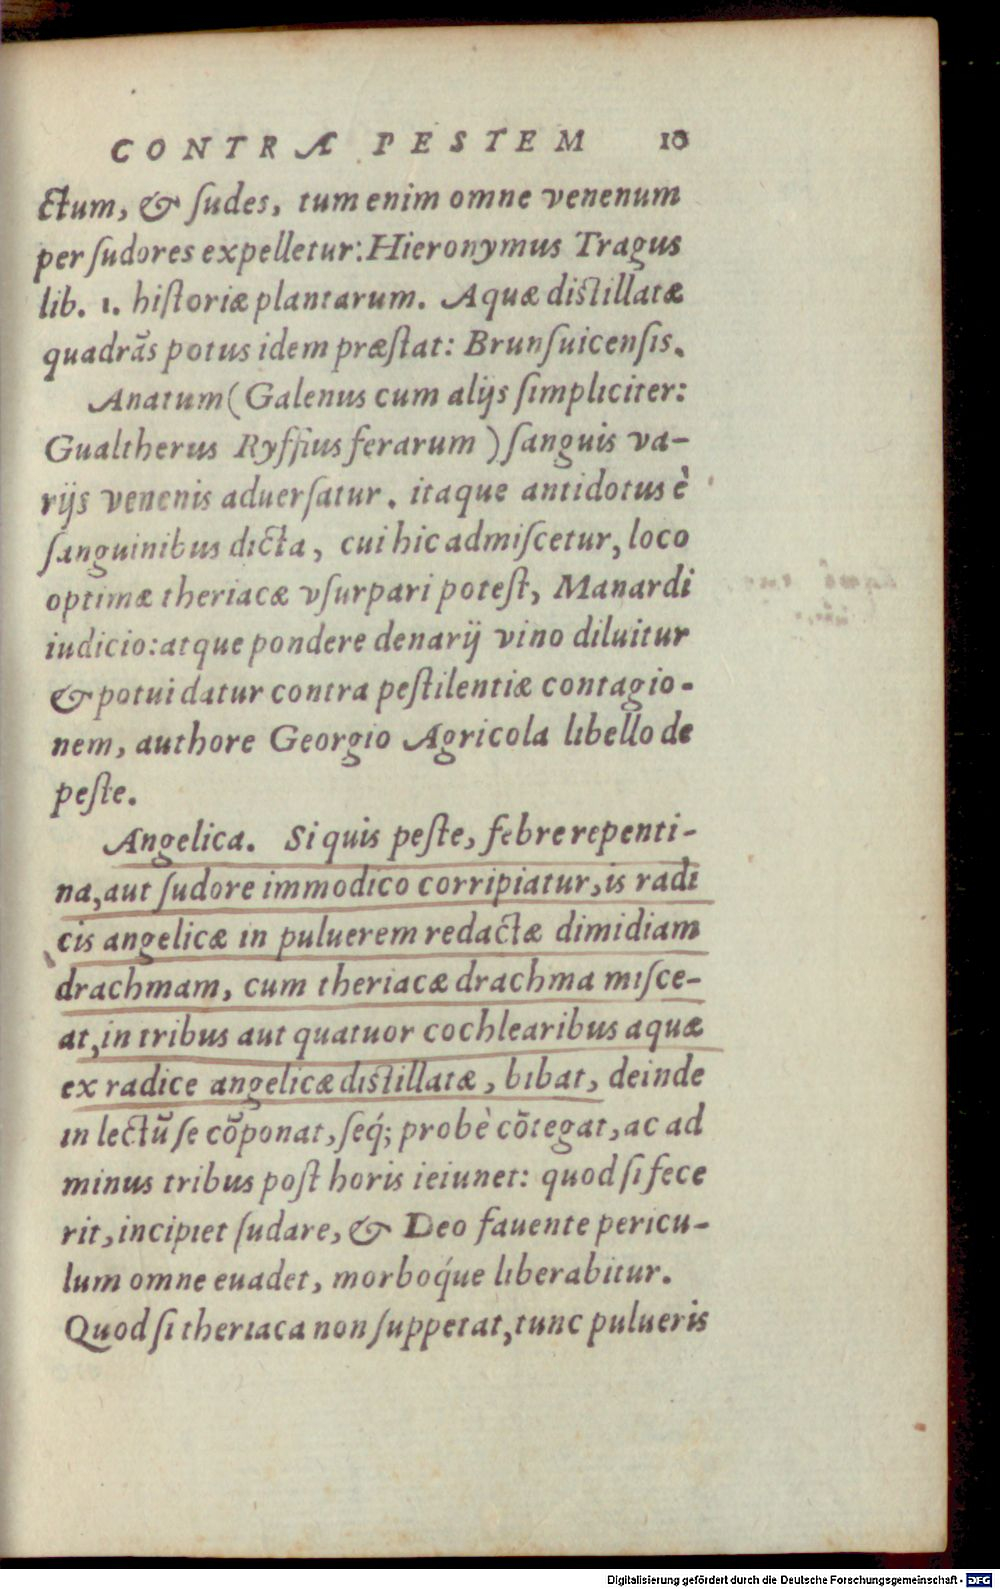 CONTRA PESTEM 10
ctum, & ſudes, tum enim omne venenum
per ſudores expelletur: Hieronymus Tragus
lib. 1. hiſtoriæ plantarum. Aquæ diſtillatæ
quadrãs potus idem præſtat: Brunſuicenſis.
Anatum (Galenus cum alijs ſimpliciter:
Gualtherus Ryffius ferarum) ſanguis va-
rijs venenis aduerſatur. itaque antidotus è
ſanguinibus dicta, cui hic admiſcetur, loco
optimæ theriacæ vſurpari poteſt, Manardi
iudicio: atque pondere denarij vino diluitur
& potui datur contra peſtilentiæ contagio-
nem, authore Georgio Agricola libello de
peſte.
Angelica. Si quis peſte, febre repenti-
na, aut ſudore immodico corripiatur, is radi
cis angelicæ in puluerem redactæ dimidiam
drachmam, cum theriacæ drachma miſce-
at, in tribus aut quatuor cochlearibus aquæ
ex radice angelicæ diſtillatæ, bibat, deinde
in lectũ ſe cõponat, ſeq́; probè cõtegat, ac ad
minus tribus poſt horis ieiunet: quod ſi fece
rit, incipiet ſudare, & Deo fauente pericu-
lum omne euadet, morboq́ue liberabitur.
Quod ſi theriaca non ſuppetat, tunc pulueris
Digitalisierung gefördert durch die Deutsche Forschungsgemeinschaft - DFG